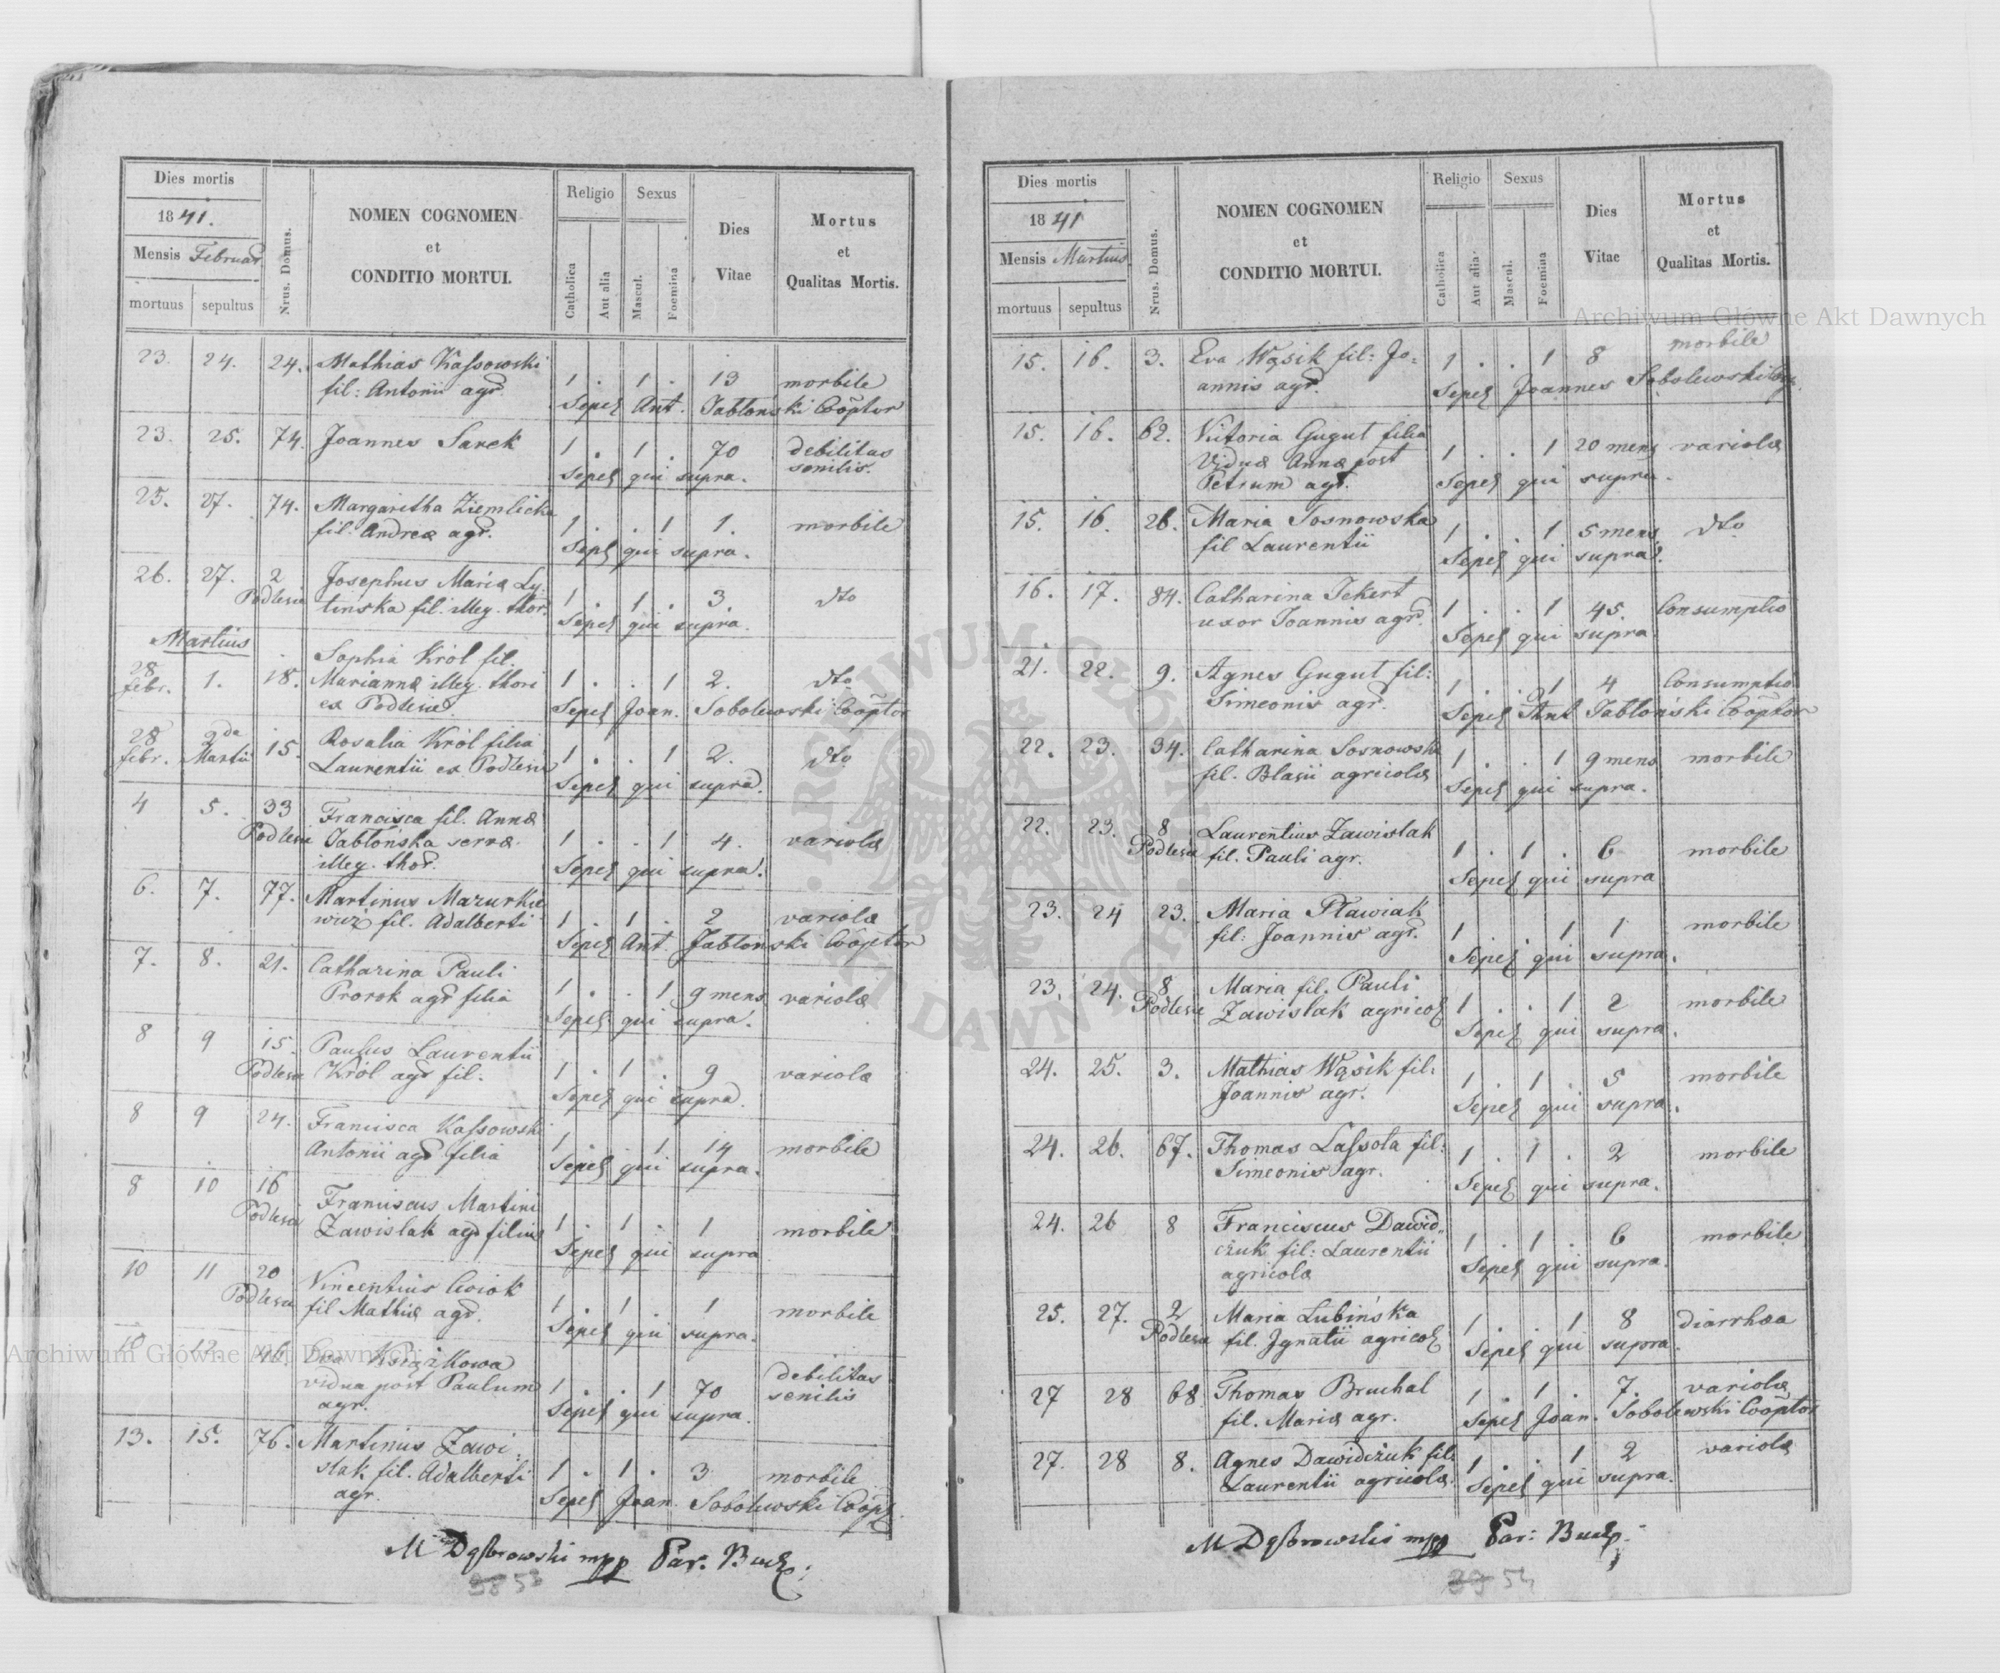 Dies mortis
1841.
Mensis Februar
mortuus sepultus
Nrus. Domus.
NOMEN COGNOMEN
et
CONDITIO MORTUI.
Religio Sexus
Catholica
Aut alia
Mascul.
Foemina
Dies
Vitae
Mortus
et
Qualitas Mortis.
23. 24. 24. Mathias Kassowski
fil: Antonii agr. 1 . 1 . 13 morbile
Sepel Ant. Jabłoński Coõptor
23. 25. 74. Joannes Sarek 1 . 1 . 70 debilitas
senilis.
Sepel qui supra.
25. 27. 74. Margaritha Ziemlicka
fil. Andreæ agr. 1 . . 1 1. morbile
Sepel qui supra.
26. 27. 2 Josephus Mariæ Ly
Podlesie tinska fil. illeg. thor. 1 . 1 . 3. dto
Sepel qui supra.
Martius
28 febr. 1. 18. Sophia Król fil.
Mariannæ illeg. thori 1 . . 1 2. dto
ex Podlesie
Sepel Joan. Sobolewski Coõptor
28 febr. 2da Martii 15. Rosalia Król filia
Laurentii ex Podlesie 1 . . 1 2. dto
Sepel qui supra.
4 5. 33 Francisca fil. Annæ
Podlesie Jabłońska servæ 1 . . 1 4. variolæ
illeg. thor.
Sepel qui supra.
6. 7. 77. Martinus Mazurkie
wicz fil. Adalberti 1 . 1 . 2 variolæ
Sepel Ant. Jabłonski Coõptor
7. 8. 21. Catharina Pauli
Prorok agr filia 1 . . 1 9 mens variolæ
Sepel qui supra.
8 9 15. Paulus Laurentii
Podlesie Król agr fil. 1 . 1 . 9 variolæ
Sepel qui supra.
8 9 24. Francisca Kassowski
Antonii agr filia 1 . . 1 14 morbile
Sepel qui supra.
8 10 16 Franciscus Martini
Podlesie Zawislak agr filius 1 . 1 . 1 morbile
Sepel qui supra
10 11 20 Vincentius Cwiok
Podlesie fil Mathiæ agr. 1 . 1 . 1 morbile
Sepel qui supra.
10 12. 46. Eva Książkowa
vidua post Paulum 1 . . 1 70 debilitas
agr. senilis
Sepel qui supra.
13. 15. 76. Martinus Zawi:
slak fil. Adalberti 1 . 1 . 3 morbile
agr.
Sepel Joan. Sobolewski Coõp.
M Dąbrowski mpp Par. Bucz.
38 53
Dies mortis
1841
Mensis Martius
mortuus sepultus
Nrus. Domus.
NOMEN COGNOMEN
et
CONDITIO MORTUI.
Religio Sexus
Catholica
Aut alia.
Mascul.
Foemina
Dies
Vitae
Mortus
et
Qualitas Mortis.
15. 16. 3. Eva Wąsik fil: Jo= 1 . . 1 8 morbile
annis agr.
Sepel Joannes Sobolewski Coop.
15. 16. 62. Victoria Gugut filia
Viduæ Annæ post 1 . . 1 20 mens variolæ
Petrum agr.
Sepel qui supra.
15. 16. 26. Maria Sosnowska
fil Laurentii 1 . . 1 5 mens. dto
Sepel qui supra.
16. 17. 84. Catharina Tekert
uxor Joannis agr. 1 . . 1 45. Consumptio
Sepel qui supra
21. 22. 9. Agnes Gugut fil:
Simeonis agr. 1 . . 1 4 Consumptio
Sepel Ant Jabłoński Coõptor
22. 23. 34. Catharina Sosnowska
fil. Blasii agricolæ 1 . . 1 9 mens morbile
Sepel qui supra.
22. 23. 8 Laurentius Zawislak
Podlesie fil. Pauli agr. 1 . 1 . 6 morbile
Sepel qui supra
23. 24 23. Maria Pławiak
fil: Joannis agr. 1 . . 1 1 morbile
Sepel qui supra.
23. 24. 8 Maria fil. Pauli
Podlesie Zawislak agricol 1 . . 1 2 morbile
Sepel qui supra.
24. 25. 3. Mathias Wąsik fil:
Joannis agr. 1 . 1 . 5 morbile
Sepel qui supra.
24. 26. 67. Thomas Lassota fil:
Simeonis agr. 1 . 1 . 2 morbile
Sepel qui supra.
24. 26 8 Franciscus Dawid„
czuk fil: Laurentii 1 . 1 . 6 morbile
agricolæ
Sepel qui supra.
25. 27. 2 Maria Lubińska
Podlesie fil. Ignatii agricol 1 . . 1 8 diarrhœa
Sepel qui supra.
27 28 68. Thomas Bruchal
fil. Mariæ agr. 1 . 1 . 7. variolæ
Sepel Joan. Sobolewski Coõptor
27. 28 8. Agnes Dawidczuk fil:
Laurentii agricolæ. 1 . . 1 2 variolæ
Sepel qui supra.
M Dąbrowski mpp Par: Bucz.
39 54
Archiwum Główne Akt Dawnych
Archiwum Główne Akt Dawnych
ARCHIWUM GŁÓWNE AKT DAWNYCH